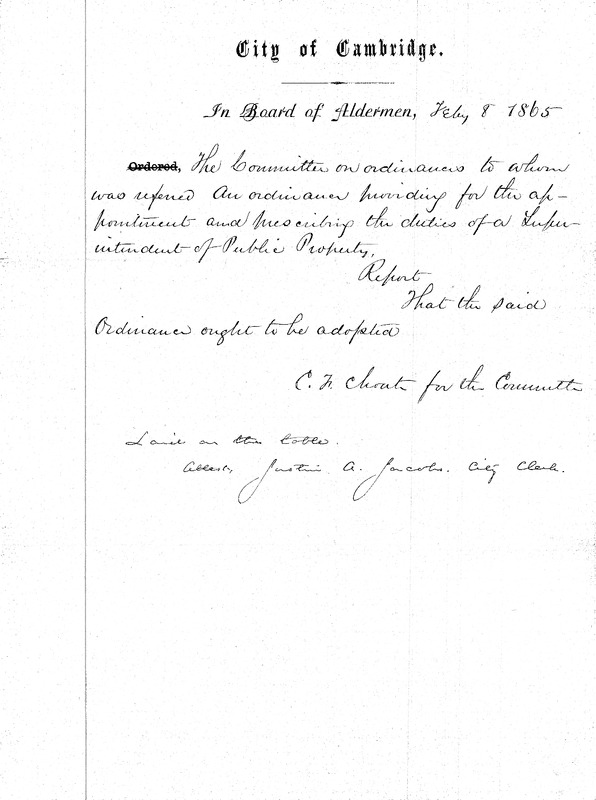 City of Cambridge.
In Board of Aldermen, Feby 8 1865
Ordered, The Committee on ordinances to whom
was referred An ordinance providing for the ap-
pointment and prescribing the duties of a Super-
intendent of Public Property,
Report
That the said
Ordinance ought to be adopted
C. F. Choate for the Committee
Laid on the table.
Attest, Justin A. Jacobs. City Clerk.